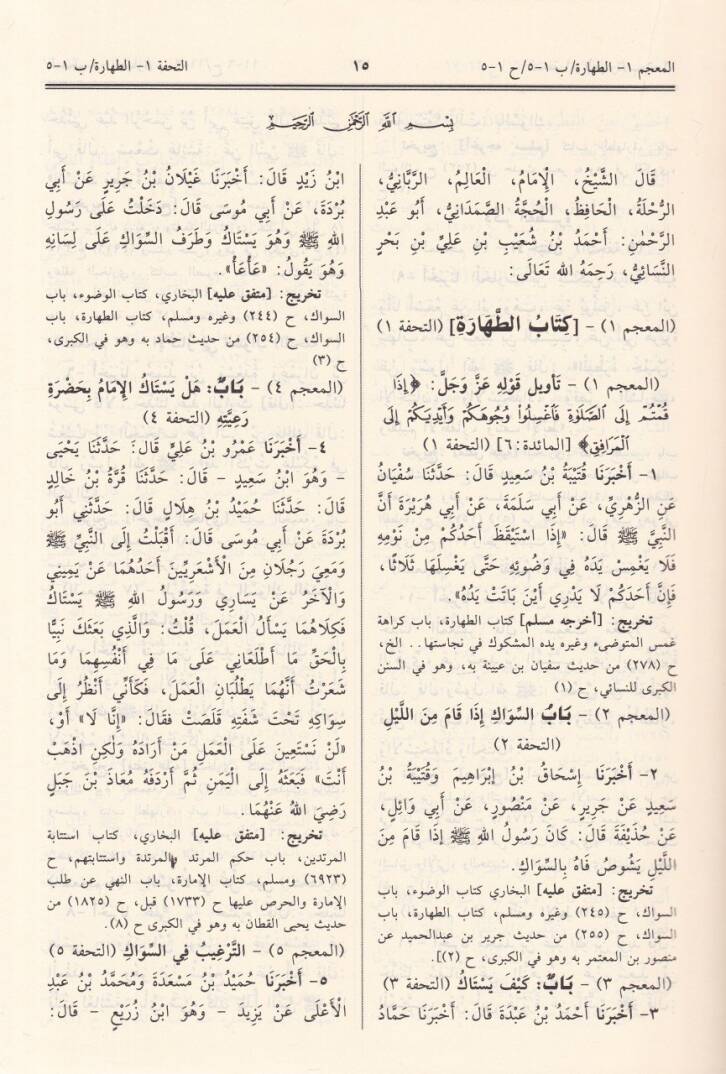 المعجم ١- الطهارة/ ب ١-٥/ ح ١-٥
١٥
التحفة ١- الطهارة/ ب ١-٥
بِسْمِ اللَّهِ الرَّحْمَٰنِ الرَّحِيمِ
قَالَ الشَّيْخُ، الإِمَامُ، الْعَالِمُ، الرَّبَّانِيُّ،
الرُّحْلَةُ، الْحَافِظُ، الْحُجَّةُ الصَّمَدَانِيُّ، أَبُو عَبْدِ
الرَّحْمٰنِ: أَحْمَدُ بْنُ شُعَيْبِ بْنِ عَلِيِّ بْنِ بَحْرٍ
النَّسَائِيُّ، رَحِمَهُ الله تَعَالَى:
(المعجم ١) - [كِتَابُ الطَّهَارَةِ] (التحفة ١)
(المعجم ١) - تأويل قَوْلِهِ عَزَّ وَجَلَّ: ﴿إِذَا
قُمْتُمْ إِلَى الصَّلَوٰةِ فَاغْسِلُوا وُجُوهَكُمْ وَأَيْدِيَكُمْ إِلَى
الْمَرَافِقِ﴾ [المائدة:٦] (التحفة ١)
١- أَخْبَرَنَا قُتَيْبَةُ بْنُ سَعِيدٍ قَالَ: حَدَّثَنَا سُفْيَانُ
عَنِ الزُّهْرِيِّ، عَنْ أَبِي سَلَمَةَ، عَنْ أَبِي هُرَيْرَةَ أَنَّ
النَّبِيَّ ﷺ قَالَ: «إِذَا اسْتَيْقَظَ أَحَدُكُمْ مِنْ نَوْمِهِ
فَلَا يَغْمِسْ يَدَهُ فِي وَضُوئِهِ حَتَّى يَغْسِلَهَا ثَلَاثًا،
فَإِنَّ أَحَدَكُمْ لَا يَدْرِي أَيْنَ بَاتَتْ يَدُهُ».
تخريج: [أخرجه مسلم] كتاب الطهارة، باب كراهة
غمس المتوضىء وغيره يده المشكوك في نجاستها.. الخ،
ح (٢٧٨) من حديث سفيان بن عيينة به، وهو في السنن
الكبرى للنسائي، ح (١)
(المعجم ٢) - بَابُ السِّوَاكِ إِذَا قَامَ مِنَ اللَّيْلِ
(التحفة ٢)
٢- أَخْبَرَنَا إِسْحَاقُ بْنُ إِبْرَاهِيمَ وَقُتَيْبَةُ بْنُ
سَعِيدٍ عَنْ جَرِيرٍ، عَنْ مَنْصُورٍ، عَنْ أَبِي وَائِلٍ،
عَنْ حُذَيْفَةَ قَالَ: كَانَ رَسُولُ اللهِ ﷺ إِذَا قَامَ مِنَ
اللَّيْلِ يَشُوصُ فَاهُ بِالسِّوَاكِ.
تخريج: [متفق عليه] البخاري كتاب الوضوء، باب
السواك، ح (٢٤٥) وغيره ومسلم، كتاب الطهارة، باب
السواك، ح (٢٥٥) من حديث جرير بن عبدالحميد عن
منصور بن المعتمر به وهو في الكبرى، ح (٢)].
(المعجم ٣) - بَابٌ: كَيْفَ يَسْتَاكُ (التحفة ٣)
٣- أَخْبَرَنَا أَحْمَدُ بْنُ عَبْدَةَ قَالَ: أَخْبَرَنَا حَمَّادُ
ابْنُ زَيْدٍ قَالَ: أَخْبَرَنَا غَيْلَانُ بْنُ جَرِيرٍ عَنْ أَبِي
بُرْدَةَ، عَنْ أَبِي مُوسَى قَالَ: دَخَلْتُ عَلَى رَسُولِ
اللهِ ﷺ وَهُوَ يَسْتَاكُ وَطَرَفُ السِّوَاكِ عَلَى لِسَانِهِ
وَهُوَ يَقُولُ: «عَأْعَأْ».
تخريج: [متفق عليه] البخاري، كتاب الوضوء، باب
السواك، ح (٢٤٤) وغيره ومسلم، كتاب الطهارة، باب
السواك، ح (٢٥٤) من حديث حماد به وهو في الكبرى،
ح (٣)
(المعجم ٤) - بَابٌ: هَلْ يَسْتَاكُ الإِمَامُ بِحَضْرَةِ
رَعِيَّتِهِ (التحفة ٤)
٤- أَخْبَرَنَا عَمْرُو بْنُ عَلِيٍّ قَالَ: حَدَّثَنَا يَحْيَى
- وَهُوَ ابْنُ سَعِيدٍ - قَالَ: حَدَّثَنَا قُرَّةُ بْنُ خَالِدٍ
قَالَ: حَدَّثَنَا حُمَيْدُ بْنُ هِلَالٍ قَالَ: حَدَّثَنِي أَبُو
بُرْدَةَ عَنْ أَبِي مُوسَى قَالَ: أَقْبَلْتُ إِلَى النَّبِيِّ ﷺ
وَمَعِيَ رَجُلَانِ مِنَ الْأَشْعَرِيِّينَ أَحَدُهُمَا عَنْ يَمِينِي
وَالْآخَرُ عَنْ يَسَارِي وَرَسُولُ اللهِ ﷺ يَسْتَاكُ
فَكِلَاهُمَا يَسْأَلُ الْعَمَلَ، قُلْتُ: وَالَّذِي بَعَثَكَ نَبِيًّا
بِالْحَقِّ مَا أَطْلَعَانِي عَلَى مَا فِي أَنْفُسِهِمَا وَمَا
شَعَرْتُ أَنَّهُمَا يَطْلُبَانِ الْعَمَلَ، فَكَأَنِّي أَنْظُرُ إِلَى
سِوَاكِهِ تَحْتَ شَفَتِهِ قَلَصَتْ فقَالَ: «إِنَّا لَا» أَوْ،
«لَنْ نَسْتَعِينَ عَلَى الْعَمَلِ مَنْ أَرَادَهُ وَلٰكِنِ اذْهَبْ
أَنْتَ» فَبَعَثَهُ إِلَى الْيَمَنِ ثُمَّ أَرْدَفَهُ مُعَاذَ بْنَ جَبَلٍ
رَضِيَ اللهُ عَنْهُمَا.
تخريج: [متفق عليه] البخاري، كتاب استتابة
المرتدين، باب حكم المرتد والمرتدة واستتابتهم، ح
(٦٩٢٣) ومسلم، كتاب الإمارة، باب النهي عن طلب
الإمارة والحرص عليها ح (١٧٣٣) قبل، ح (١٨٢٥) من
حديث يحيى القطان به وهو في الكبرى ح (٨).
(المعجم ٥) - التَّرْغِيبُ فِي السِّوَاكِ (التحفة ٥)
٥- أَخْبَرَنَا حُمَيْدُ بْنُ مَسْعَدَةَ وَمُحَمَّدُ بْنُ عَبْدِ
الْأَعْلَى عَنْ يَزِيدَ - وَهُوَ ابْنُ زُرَيْعٍ - قَالَ: